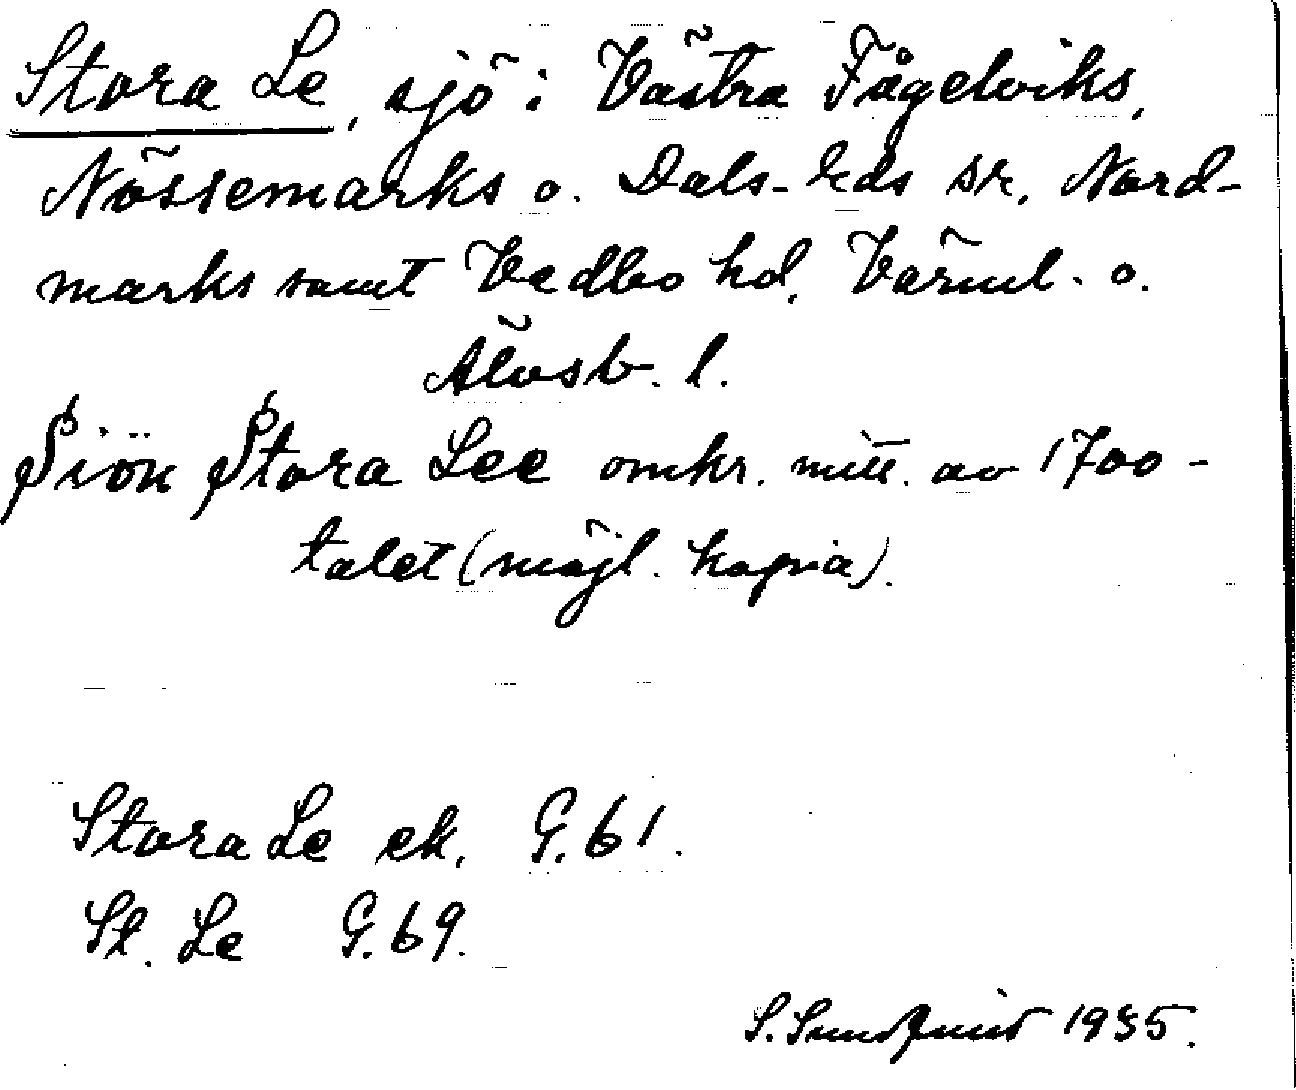 Stora Le, sjö i Västra Fågelviks,
Nössemarks o. Dals-Eds sr, Nord-
marks samt Vedbo hd, Värml. o.
Älvsb. l.
Siön Stora Lee omkr. mitt. av 1700-
talet (möjl. kopia).
Stora Le ek. G.61.
St. Le G.69.
S. Sundquist 1935.